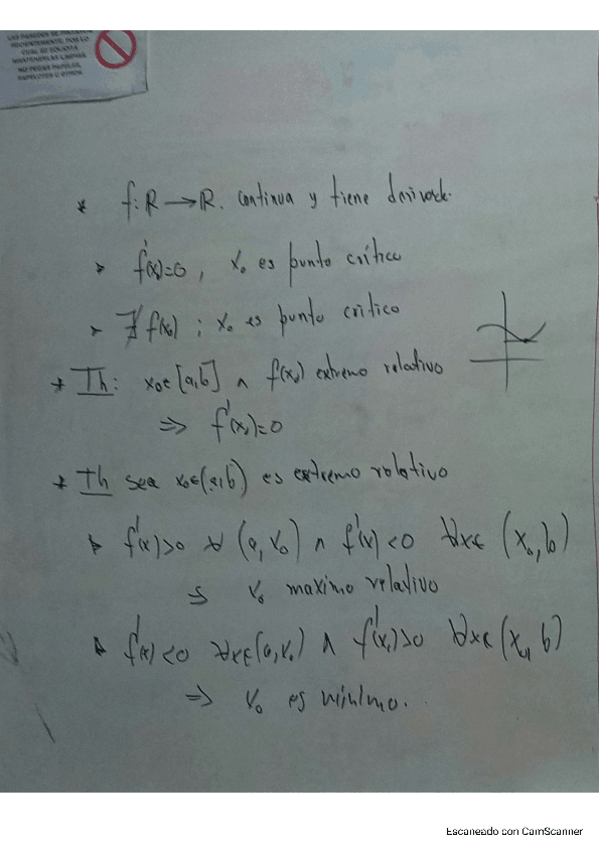 LAS PAREDES SE PINTARON
RECIENTEMENTE, POR LO
CUAL SE SOLICITA
MANTENERLAS LIMPIAS
NO PEGAR PAPELES,
PAPELOTES U OTROS
* f: R → R. continua y tiene derivada.
▸ f'(x₀)=0, x₀ es punto crítico
▸ ∄ f'(x₀) ; x₀ es punto critico
* Th: x₀∈[a,b] ∧ f(x₀) extremo relativo
⇒ f'(x₀)=0
* Th sea x₀∈(a,b) es extremo relativo
▸ f'(x)>0 ∀ (a, x₀) ∧ f'(x)<0 ∀x∈ (x₀,b)
⇒ x₀ maximo relativo
▸ f'(x)<0 ∀x∈(a,x₀) ∧ f'(x)>0 ∀x∈(x₀, b)
⇒ x₀ es mínimo.
Escaneado con CamScanner